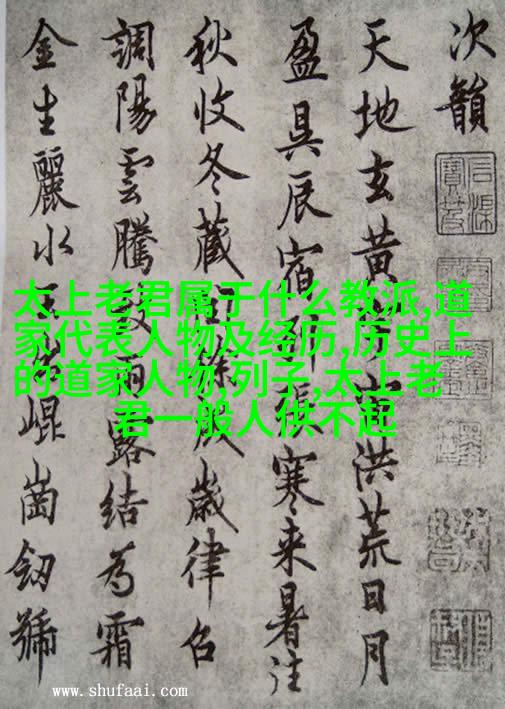 次韻
天地玄黄洪荒日月
盈昃辰宿列張寒来暑往
秋收冬藏歲律召
調陽雲騰致雨露結為霜
金生麗水崐崗劒號
太上老君属于什么教派,道
家代表人物及经历,历史上
的道家人物,列子,太上老
君一般人供不起
www.shufaai.com